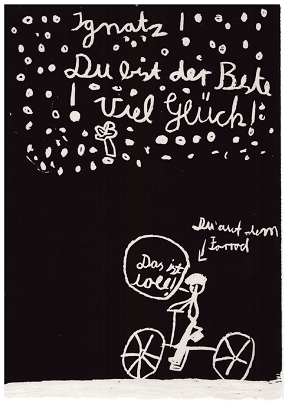 Ignatz!
Du bist der Beste
! Viel Glück!
Du auf dem
Farrod
Das ist
toll!